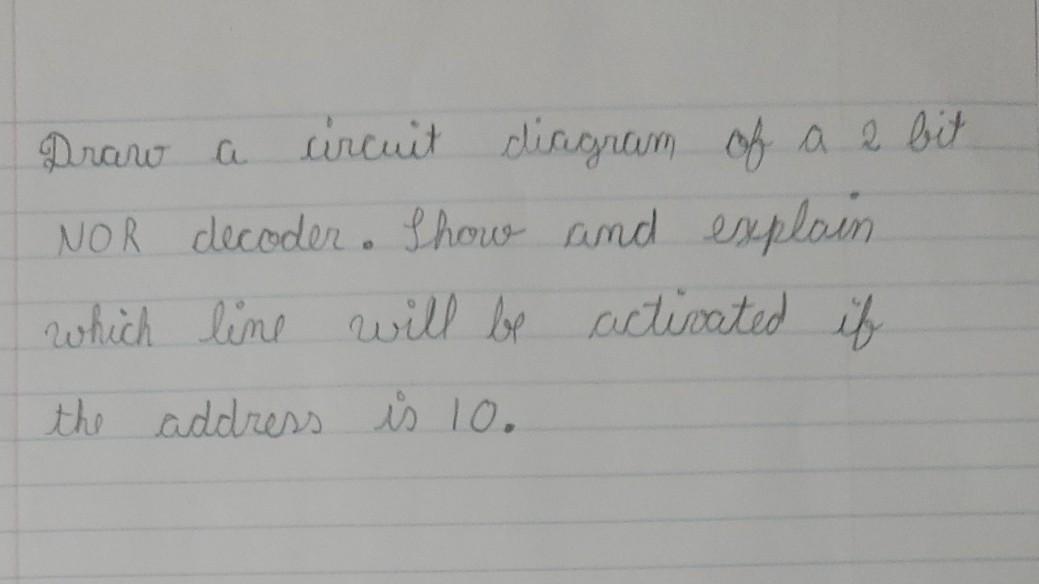 Draw a circuit diagram of a 2 bit
NOR decoder. Show and explain
which line will be activated if
the address is 10.